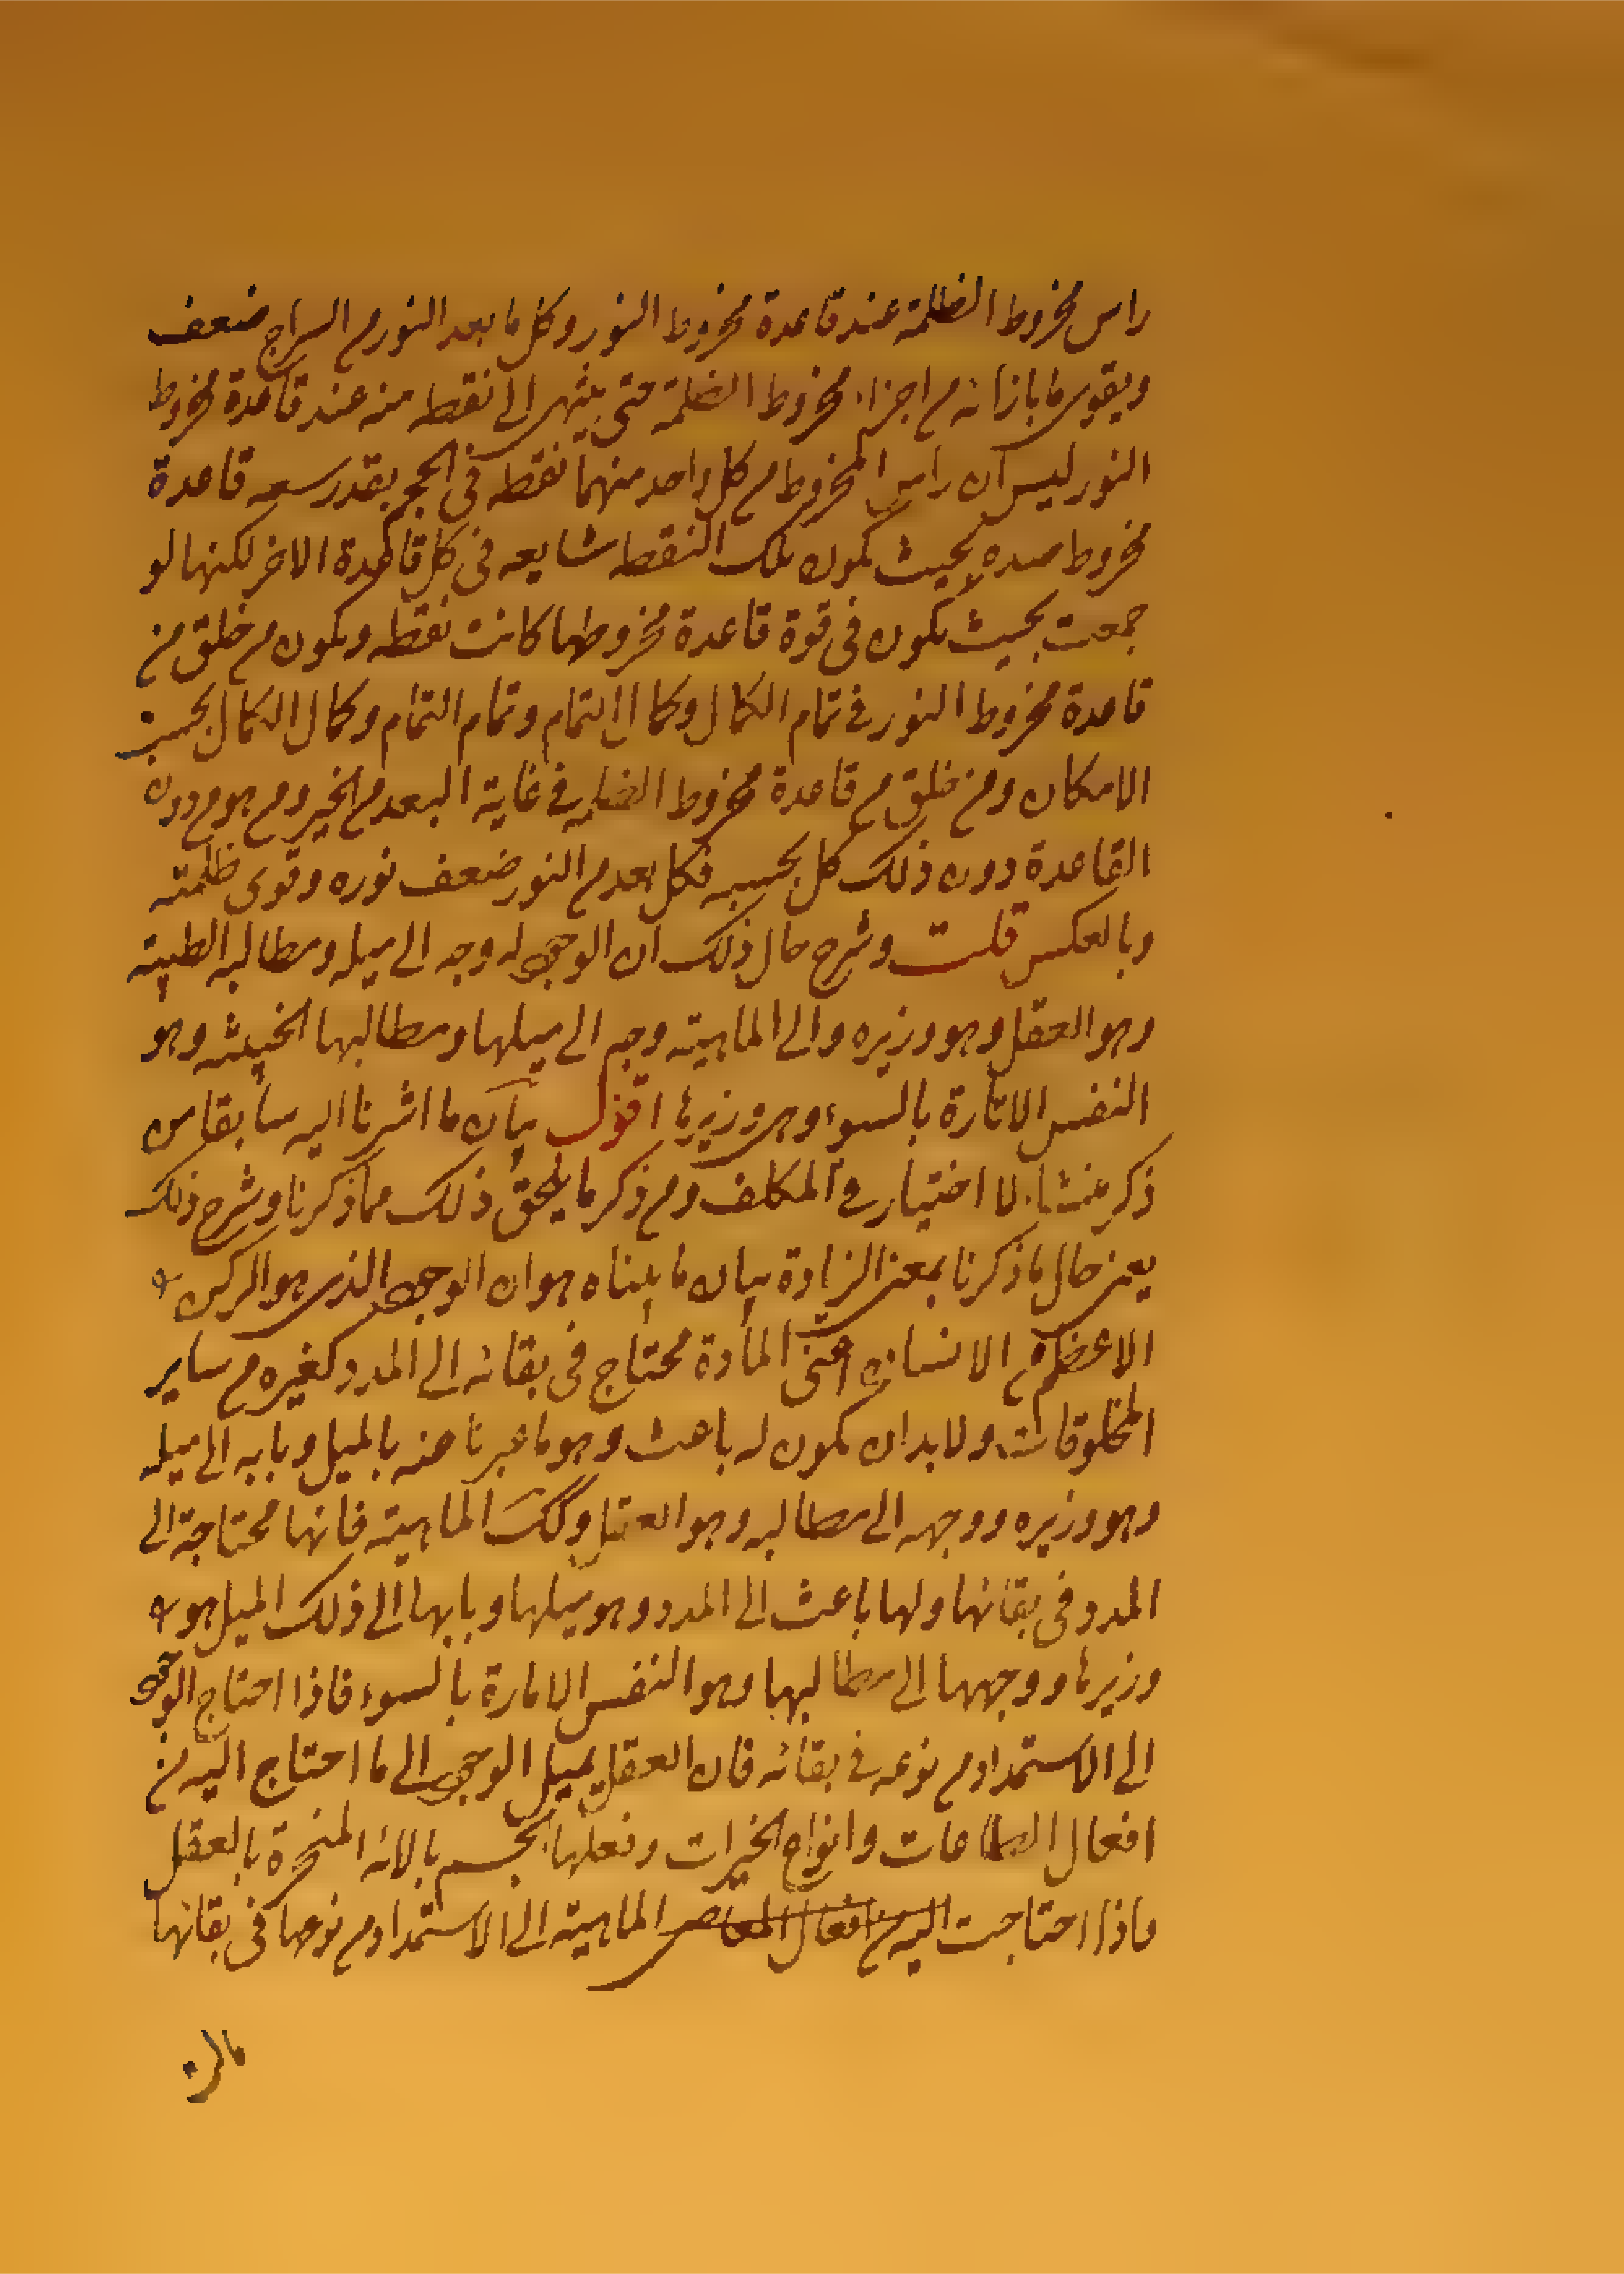 راس مخروط الظلمة عند قاعدة مخروط النور وكل ما بعد النور م السراج ضعف
ويقوى ما بازائه م اجزاء مخروط الظلمة حتى ينتهى الى نقطه منه عند قاعدة مخروط
النور ليس ان راس المخروط م كل واحد منهما نقطه فى الحجم بقدر سعه قاعدة
مخروط ضده بحيث تكون تلك النقطه شايعه فى كل قاعدة الاخر لكنها لو
جمعت بحيث يكون فى قوة قاعدة مخروطها كانت نقطه ويكون م خلق من
قاعدة مخروط النور فى تمام الكمال وكمال التمام وتمام التمام وكمال الكمال بحسب
الامكان ومن خلق م قاعدة مخروط الظلمه فى غاية البعد م الخير وم هو م دون
القاعدة دون ذلك كل بحسبه فكل بعد م النور ضعف نوره وقوى ظلمته
وبالعكس قلت وشرح حال ذلك ان الوجود له وجه الى ميله ومطالبه الطيبة
وهو العقل وهو وزيره والى الماهية وجه الى ميلها ومطالبها الخبيثه وهو
النفس الامارة بالسوء وهى وزيرها اقول بيان ما اشرنا اليه سابقا من
ذكر منشاء لا اختيار فى المكلف وم ذكر ما يلحق ذلك مما ذكرنا وشرح ذلك
يعنى حال ما ذكرنا بمعنى الزيادة بيان ما بيناه هو ان الوجود الذى هو الركن
الاعظم م الانسان اعنى المادة محتاج فى بقائه الى المدد كغيره م ساير
المخلوقات ولا بد ان يكون له باعث وهو ما عبرنا عنه بالميل وبابه الى ميله
وهو وزيره ووجهه الى مطالبه وهو العقل وكك الماهية فانها محتاجة الى
المدد فى بقائها ولها باعث الى المدد وهو ميلها وبابها الى ذلك الميل هو
وزيرها ووجهها الى مطالبها وهو النفس الامارة بالسوء فاذا احتاج الوجود
الى الاستمداد م نوعه فى بقائه فان العقل يميل الوجود الى ما احتاج اليه من
افعال الطاعات وانواع الخيرات وفعلها بالجسم بالاته المسخرة بالعقل
فاذا احتاجت اليه م افعال المعاصى الماهية الى الاستمداد م نوعها فى بقائها
فان